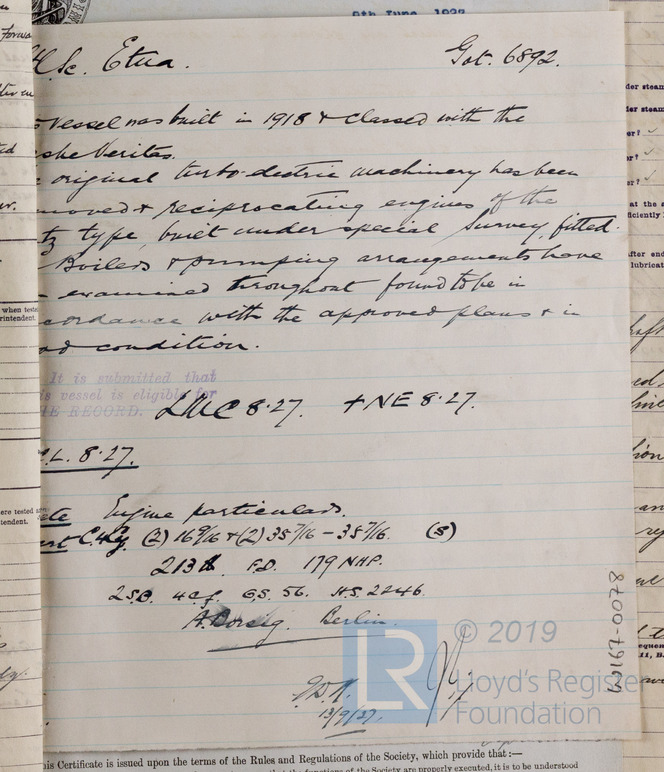 9th June, 1927
Sc. Etna.
Got. 6892.
vessel was built in 1918 & classed with the
Veritas.
original turbo-electric machinery has been
moved & reciprocating engines of the
tz type, built under special survey, fitted.
Boilers & pumping arrangements have
examined throughout found to be in
cordance with the approved plans & in
od condition.
It is submitted that
is vessel is eligible for
HE RECORD.
LMC 8·27. + NE 8·27.
L. 8·27.
Engine particulars.
(2) 16 9/16 & (2) 35 7/16 - 35 7/16. (s)
213 lb F.D. 179 NHP.
2 S.B. 4 cf. G.S. 56. H.S. 2246.
A. Borsig. Berlin.
13/9/27.
W167-0078
LR
© 2019
Lloyd's Register
Foundation
when tested
rintendent.
ere tested
tendent.
der steam
der steam
er?
or?
er?
at the
ficiently
fter end
lubricat
his Certificate is issued upon the terms of the Rules and Regulations of the Society, which provide that :—
that the functions of the Society are properly executed, it is to be understood